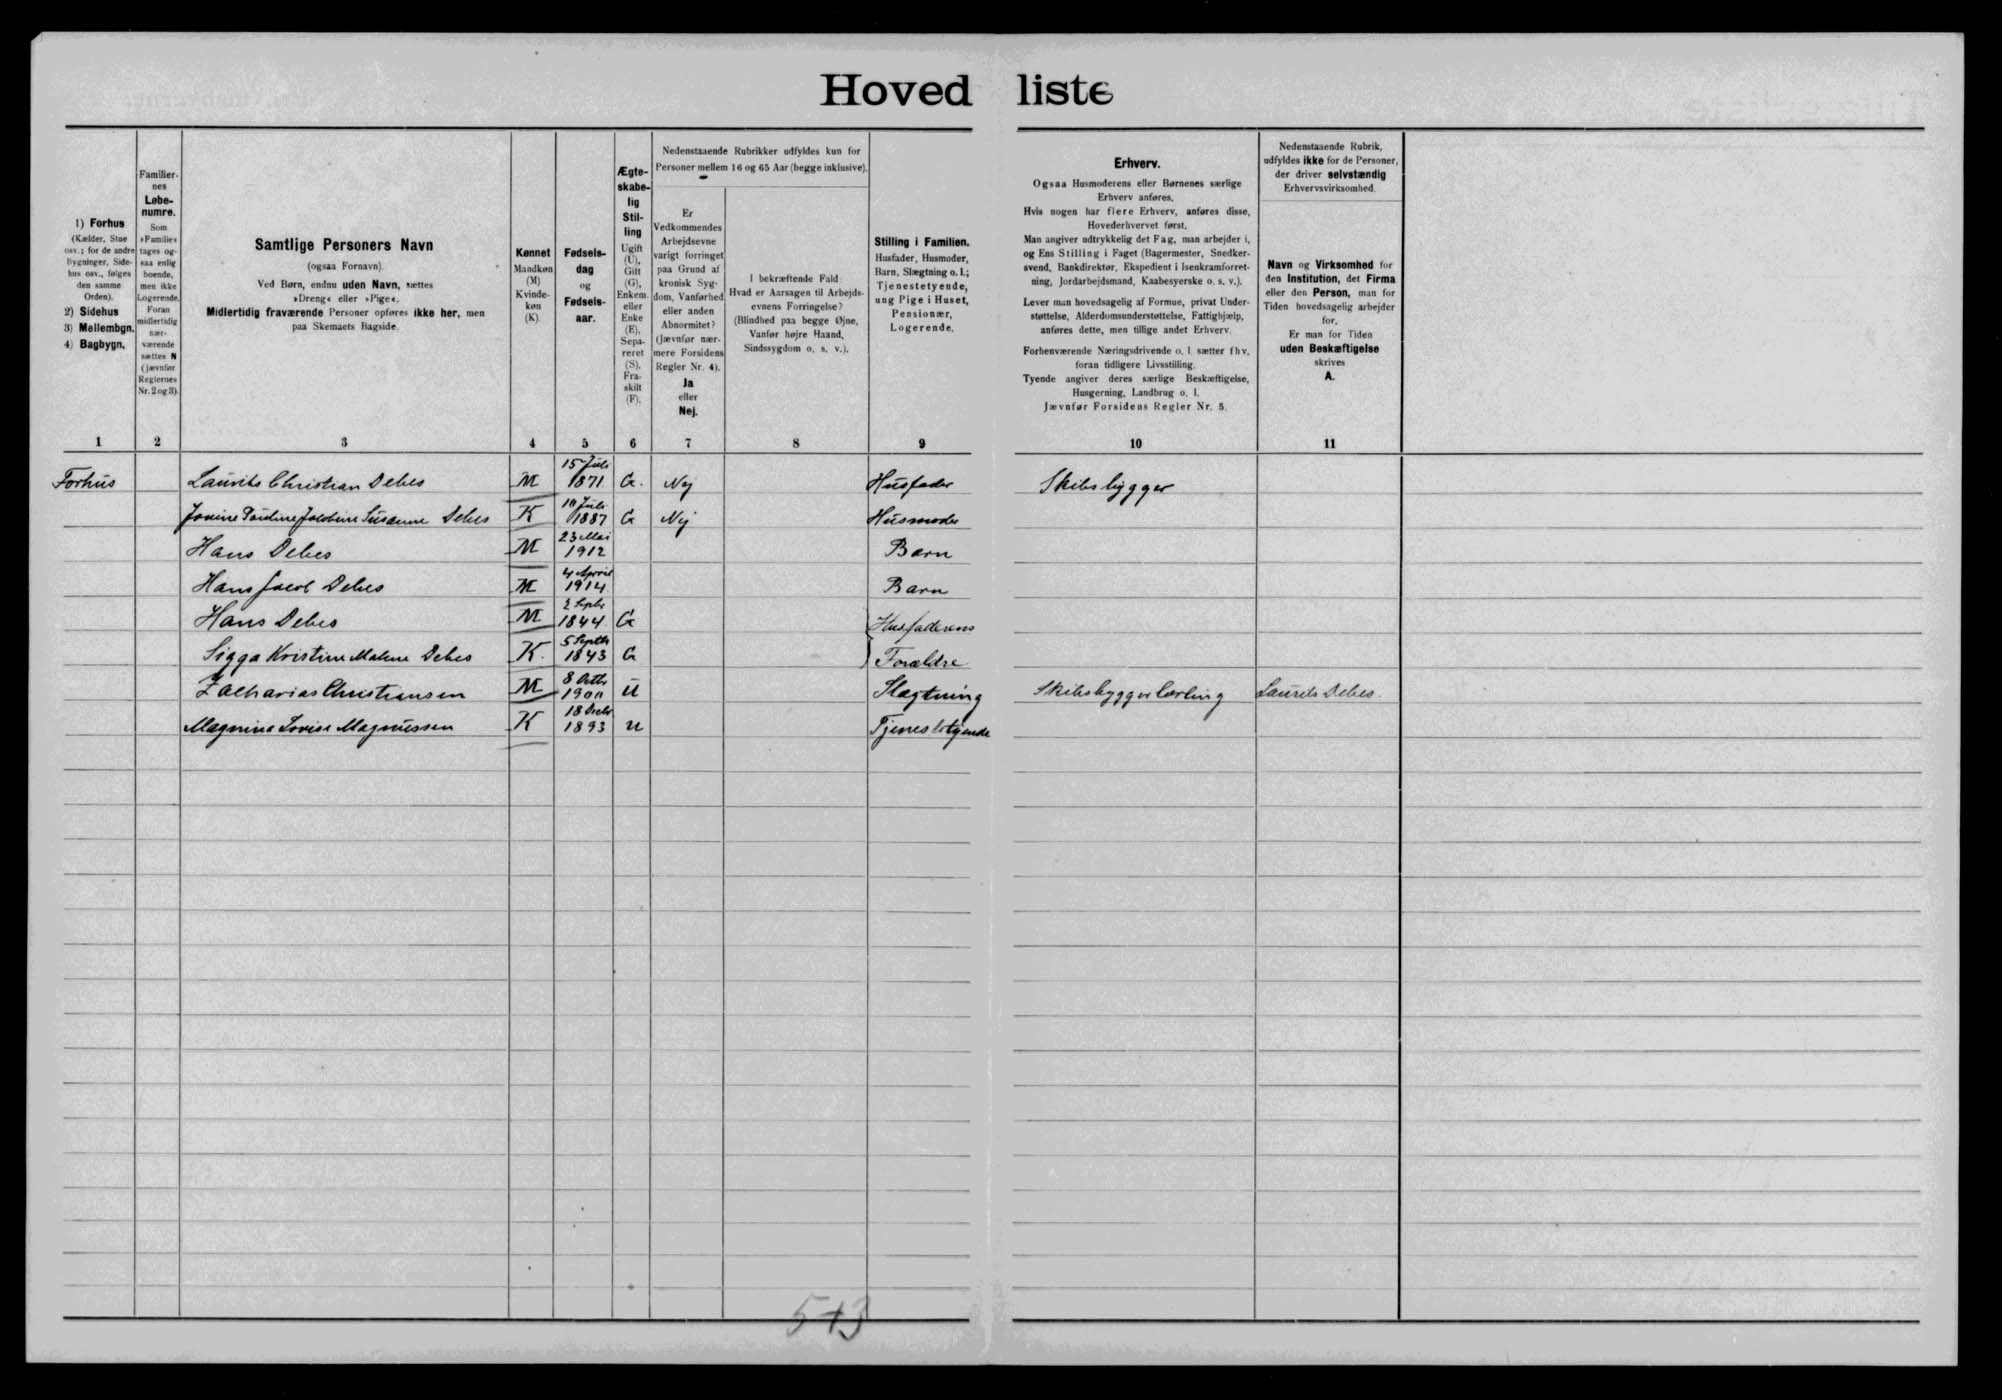 Hovedliste
1) Forhus
(Kælder, Stue
osv.; for de andre
Bygninger, Side-
hus osv., følges
den samme
Orden).
2) Sidehus
3) Mellembgn.
4) Bagbygn.
1
Familier-
nes
Løbe-
numre.
Som
»Familie«
tages og-
saa enlig
boende,
men ikke
Logerende.
Foran
midlertidig
nær-
værende
sættes N
(jævnfør
Reglernes
Nr. 2 og 3).
2
Samtlige Personers Navn
(ogsaa Fornavn).
Ved Børn, endnu uden Navn, sættes
»Dreng« eller »Pige«.
Midlertidig fraværende Personer opføres ikke her, men
paa Skemaets Bagside.
3
Kønnet
Mandkøn
(M)
Kvinde-
køn
(K).
4
Fødsels-
dag
og
Fødsels-
aar.
5
Ægte-
skabe-
lig
Stil-
ling
Ugift
(U),
Gift
(G),
Enkem.
eller
Enke
(E),
Sepa-
reret
(S),
Fra-
skilt
(F).
6
Nedenstaaende Rubrikker udfyldes kun for
Personer mellem 16 og 65 Aar (begge inklusive).
Er
Vedkommendes
Arbejdsevne
varigt forringet
paa Grund af
kronisk Syg-
dom, Vanførhed
eller anden
Abnormitet?
(Jævnfør nær-
mere Forsidens
Regler Nr. 4).
Ja
eller
Nej.
7
I bekræftende Fald:
Hvad er Aarsagen til Arbejds-
evnens Forringelse?
(Blindhed paa begge Øjne,
Vanfør højre Haand,
Sindssygdom o. s. v.).
8
Stilling i Familien.
Husfader, Husmoder,
Barn, Slægtning o. l.;
Tjenestetyende,
ung Pige i Huset,
Pensionær,
Logerende.
9
Erhverv.
Ogsaa Husmoderens eller Børnenes særlige
Erhverv anføres.
Hvis nogen har flere Erhverv, anføres disse,
Hovederhvervet først.
Man angiver udtrykkelig det Fag, man arbejder i,
og Ens Stilling i Faget (Bagermester, Snedker-
svend, Bankdirektør, Ekspedient i Isenkramforret-
ning, Jordarbejdsmand, Kaabesyerske o. s. v.).
Lever man hovedsagelig af Formue, privat Under-
støttelse, Alderdomsunderstøttelse, Fattighjælp,
anføres dette, men tillige andet Erhverv.
Forhenværende Næringsdrivende o. l. sætter fhv.
foran tidligere Livsstilling.
Tyende angiver deres særlige Beskæftigelse,
Husgerning, Landbrug o. l.
Jævnfør Forsidens Regler Nr. 5.
10
Nedenstaaende Rubrik,
udfyldes ikke for de Personer,
der driver selvstændig
Erhvervsvirksomhed.
Navn og Virksomhed for
den Institution, det Firma
eller den Person, man for
Tiden hovedsagelig arbejder
for.
Er man for Tiden
uden Beskæftigelse
skrives
A.
11
Forhus Laurits Christian Debes M 15 Juli 1871 G. Nej Husfader Skibsbygger
Pouline Jacobine Susanne Debes K Juli 1887 G Nej Husmoder
Hans Debes M 23 Mai 1912 Barn
Hans Jacob Debes M 4 April 1914 Barn
Hans Debes M 2 Septbr 1844 G Husfaderens
Sigga Kristine Malene Debes K. 5 Septbr 1843 G Forældre
Zacharias Christiansen M 8 Octbr 1900 U Slægtning Skibsbyggerlærling Laurits Debes.
Magnina Lovise Magnussen K 18 Decbr 1893 U Tjenestetyende
5+3